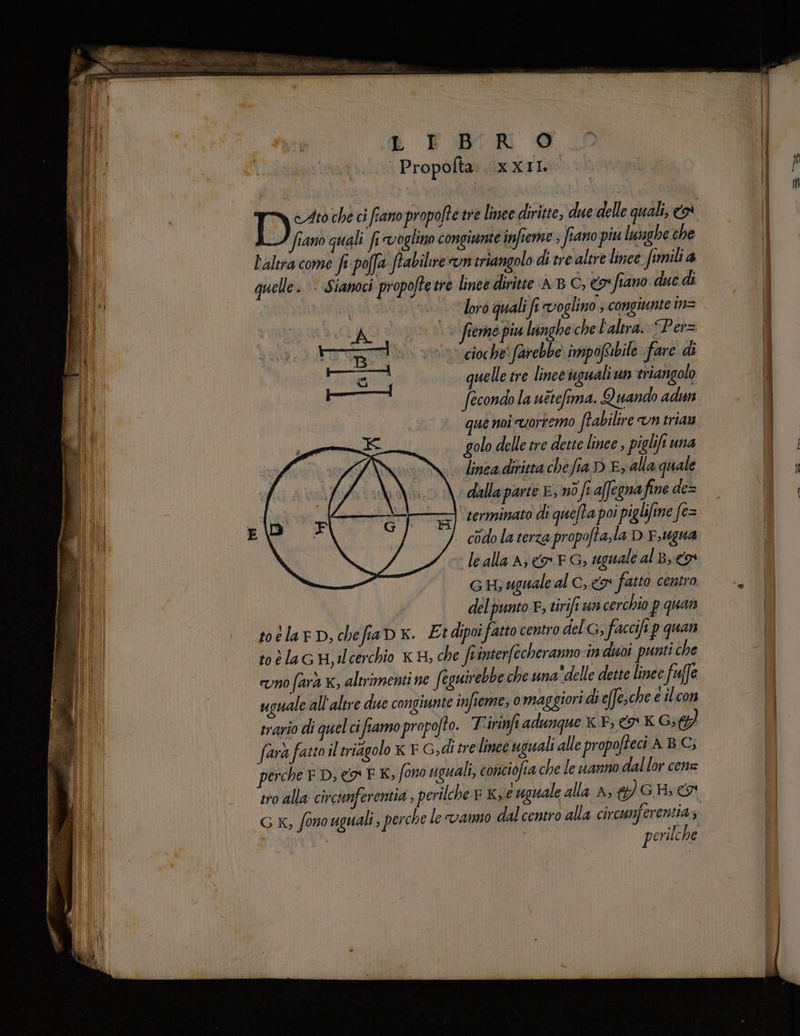 LIBRO
Propoſta XXII.
DAto che ci ſiano propoſte tre linee diritte, due delle quali, &
ſiano quali ſi voglino congiunte inſieme, ſiano piu lunghe che
l'altra come ſi poſſa ſtabilire vn triangolo di tre altre linee ſimili a
quelle. Sianoci propoſte tre linee diritte A B C, & ſiano due di
loro quali ſi voglino, congiunte in=
ſieme piu lunghe che l'altra. Per=
cioche ſarebbe impoſsibile fare di
quelle tre linee uguali un triangolo
ſecondo la uẽteſima. Quando adun
que noi vorremo ſtabilire vn trian
golo delle tre dette linee, pigliſi una
linea diritta che ſia D E, alla quale
dalla parte E, nõ ſi aſſegna fine de=
terminato di queſta poi pigliſine ſe=
cõdo la terza propoſta, la D F, ugua
le alla A, & F G, uguale al B, &
G H, uguale al C, & fatto centro
del punto F, tiriſi un cerchio p quan
to è la F D, che ſia D K. Et dipoi fatto centro del G, facciſi p quan
to è la G H, il cerchio K H, che ſi interſecheranno in duoi punti che
vno ſarà K, altrimenti ne ſeguirebbe che una delle dette linee fuſſe
uguale all'altre due congiunte inſieme, o maggiori di eſſe, che è il con
trario di quel ci ſiamo propoſto. Tirinſi adunque K F, & K G, &
ſarà fatto il triãgolo K F G, di tre linee uguali alle propoſteci A B C;
perche F D, & F K, ſono uguali, concioſia che le uanno dal lor cen=
tro alla circunferentia, perilche F K, è uguale alla A, & G H, &
G K, ſono uguali, perche le vanno dal centro alla circunferentia,
perilche
A
B
C
K
E
D
F
G
H